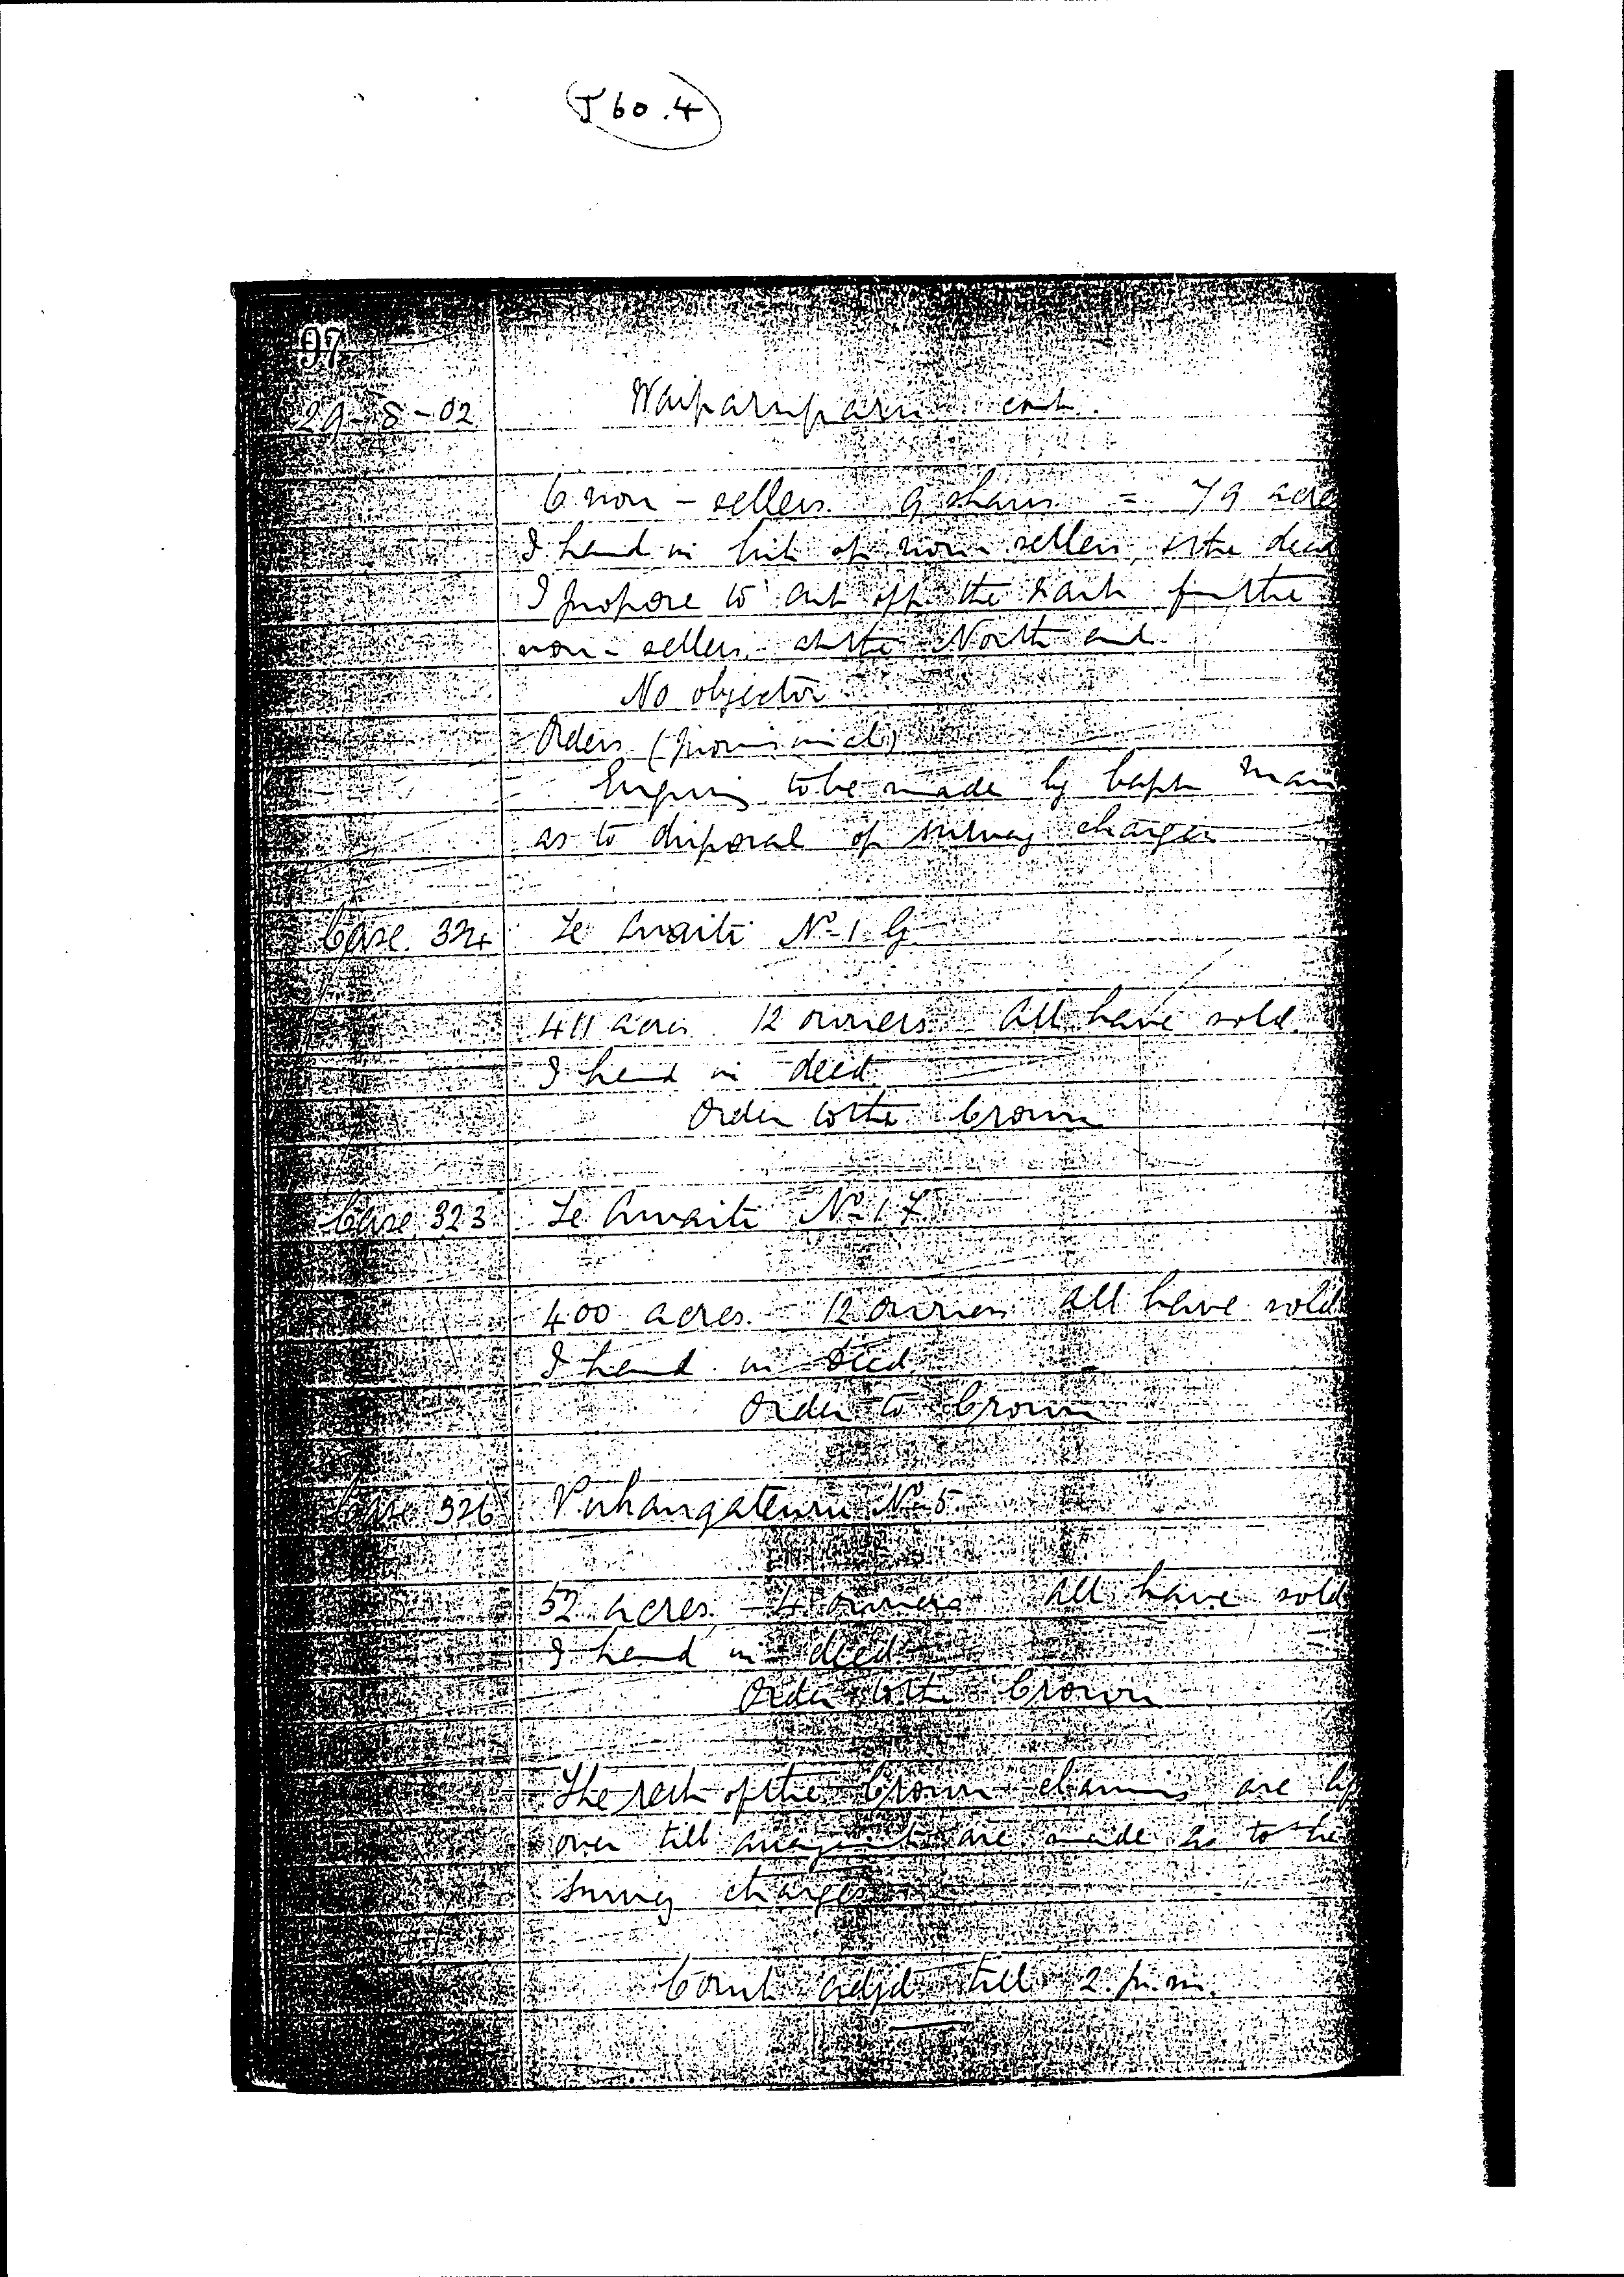 J 60.4
97
29-8-02 Waiparapara cont.
6 non-sellers. 9 shares = 79 acre
I hand in list of non sellers, & the deed
I propose to cut off the land for the
non-sellers at the North end.
No objector
Orders (provisional)
Enquiry to be made by Capt Mair
as to disposal of survey charges
Case 324 Te Awaiti No 1 G
411 acres. 12 owners. All have sold.
I hand in deed
Order to the Crown
Case 323 Te Awaiti No 1 F
400 acres. 12 owners All have sold
I hand in deed
Order to Crown
Case 326 No 5.
52 acres. 4 owners All have sold
I hand in deed
Order to the Crown
The rest of the Crown claims are
over till are made as to the
survey charges
Court adjd till 2.p.m.